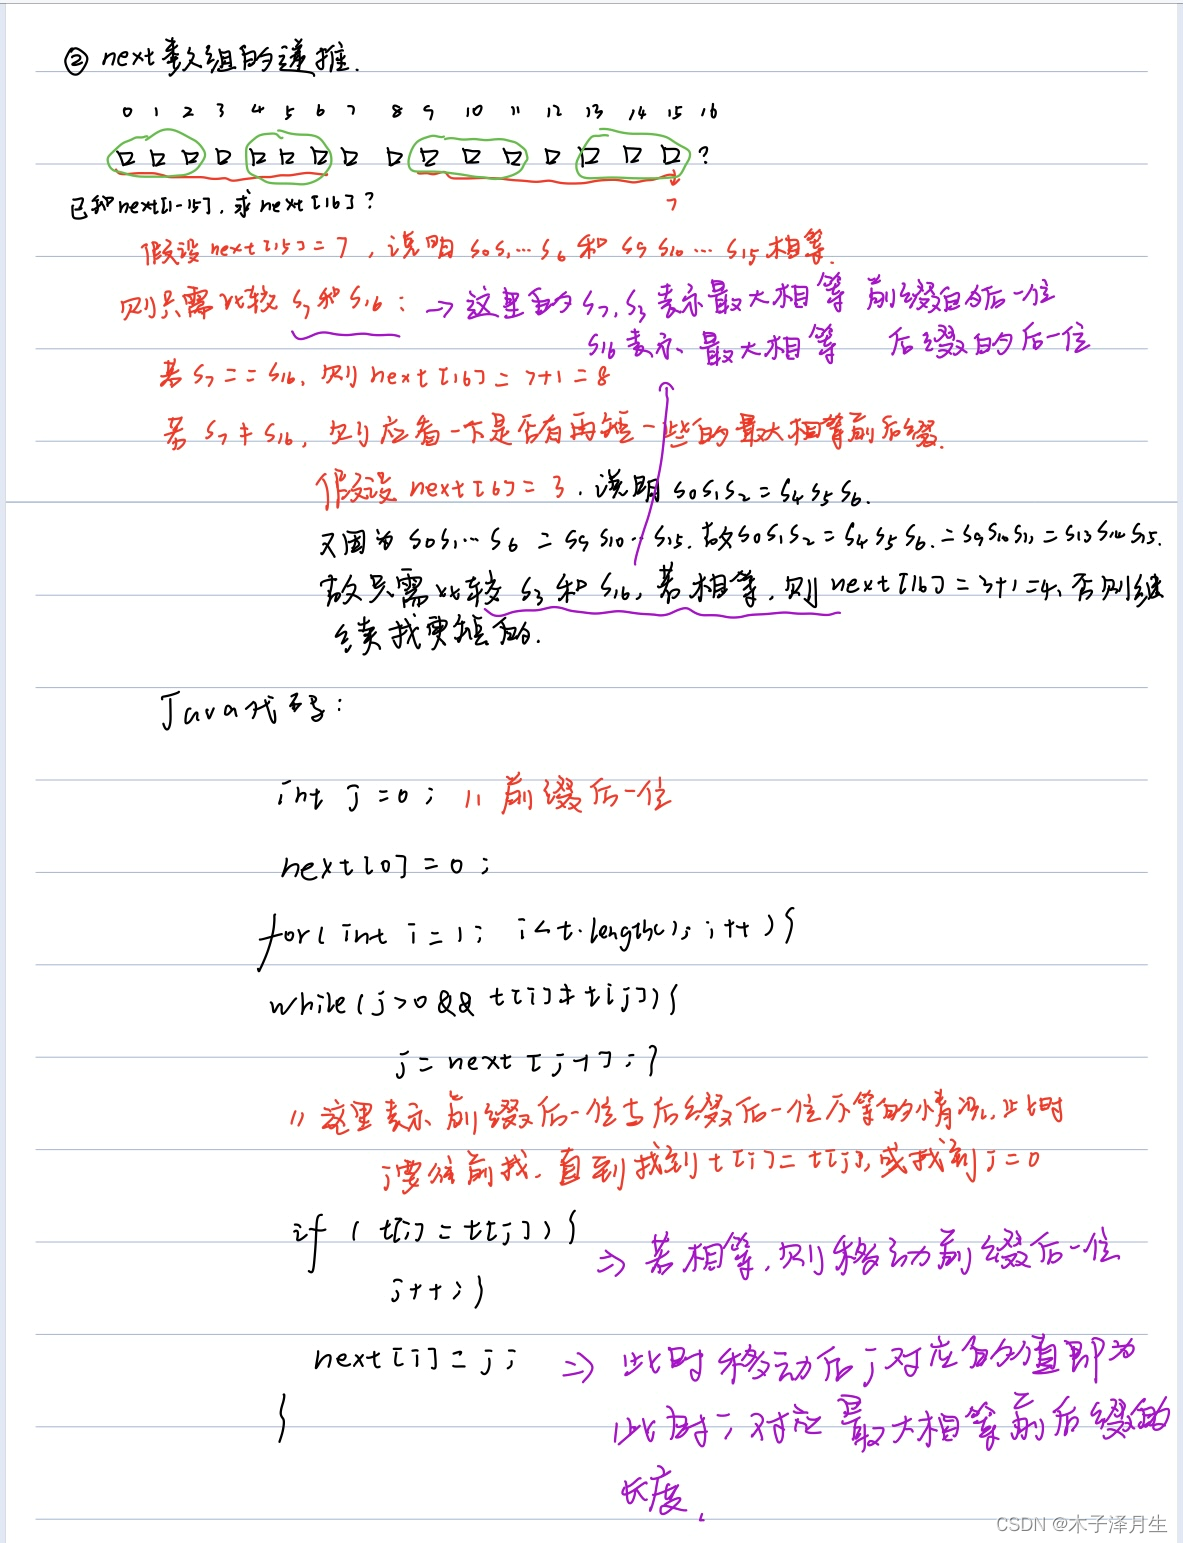 ② next数组的递推.
0 1 2 3 4 5 6 7 8 9 10 11 12 13 14 15 16
?
已知next[1-15], 求next[16]?
7
假设next[15]=7, 说明 s0s1…s6 和 s9s10…s15相等.
则只需比较 s7和s16: → 这里的s7,s3表示最大相等 前缀的后一位
s16表示 最大相等 后缀的后一位
若 s7==s16, 则 next[16]=7+1=8
若 s7≠s16, 则应看一下是否有再短一些的最大相等前后缀.
假设 next[6]=3. 说明 s0s1s2=s4s5s6.
又因为 s0s1…s6=s9s10…s15. 故s0s1s2=s4s5s6.=s9s10s11=s13s14s15.
故只需比较 s3和s16, 若相等, 则next[16]=3+1=4, 否则继
续找更短的.
Java代码:
int j=0; // 前缀后一位
next[0]=0;
for(int i=1; i<t.length(); i++){
while(j>0 && t[i]≠t[j]){
j=next[j-1];}
// 这里表示前缀后一位与后缀后一位不等的情况, 此时
j要往前找, 直到找到t[i]=t[j], 或找到j=0
if (t[i]=t[j]){
j++;} ⇒ 若相等, 则移动前缀后一位
next[i]=j; ⇒ 此时移动后j对应的值即为
} 此时i对应最大相等前后缀的
长度.
CSDN @木子泽月生